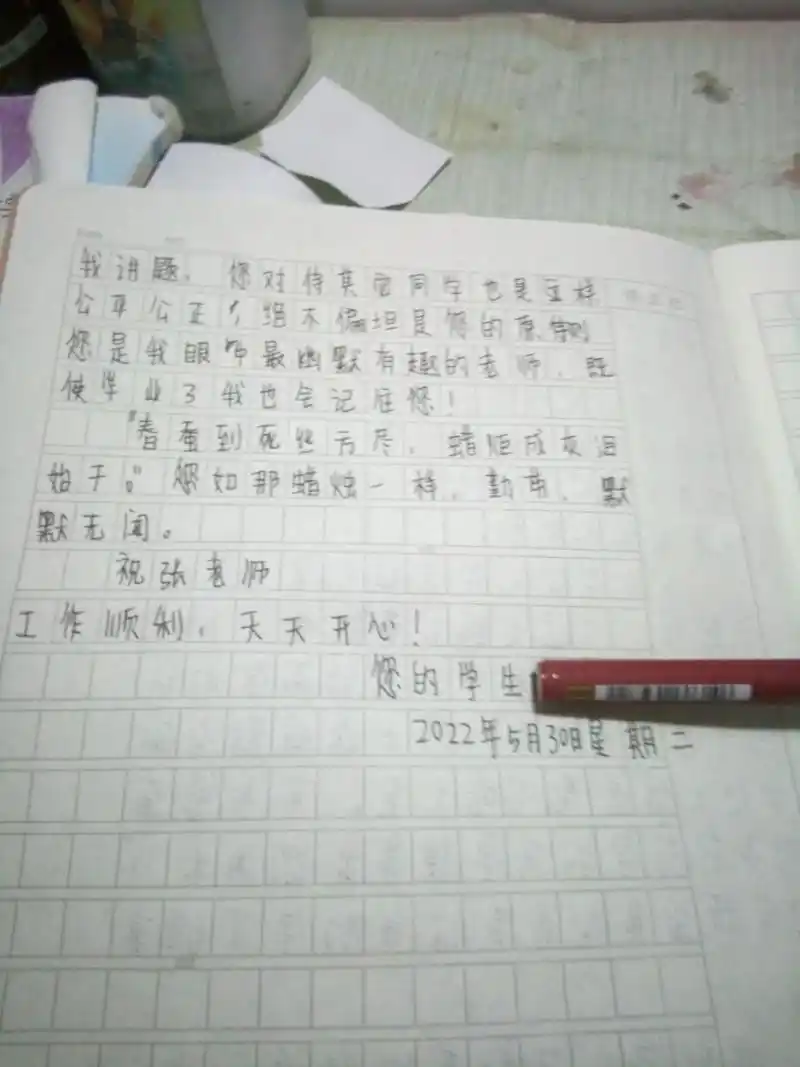 我讲题。您对待其它同学也是这样
公平公正,绝不偏坦是您的原则
您是我眼中最幽默有趣的老师,既
使毕业了我也会记住您!
“春蚕到死丝方尽,蜡炬成灰泪
始干。”您如那蜡烛一样,勤劳、默
默无闻。
祝张老师
工作顺利,天天开心!
您的学生
2022年5月30日星期二